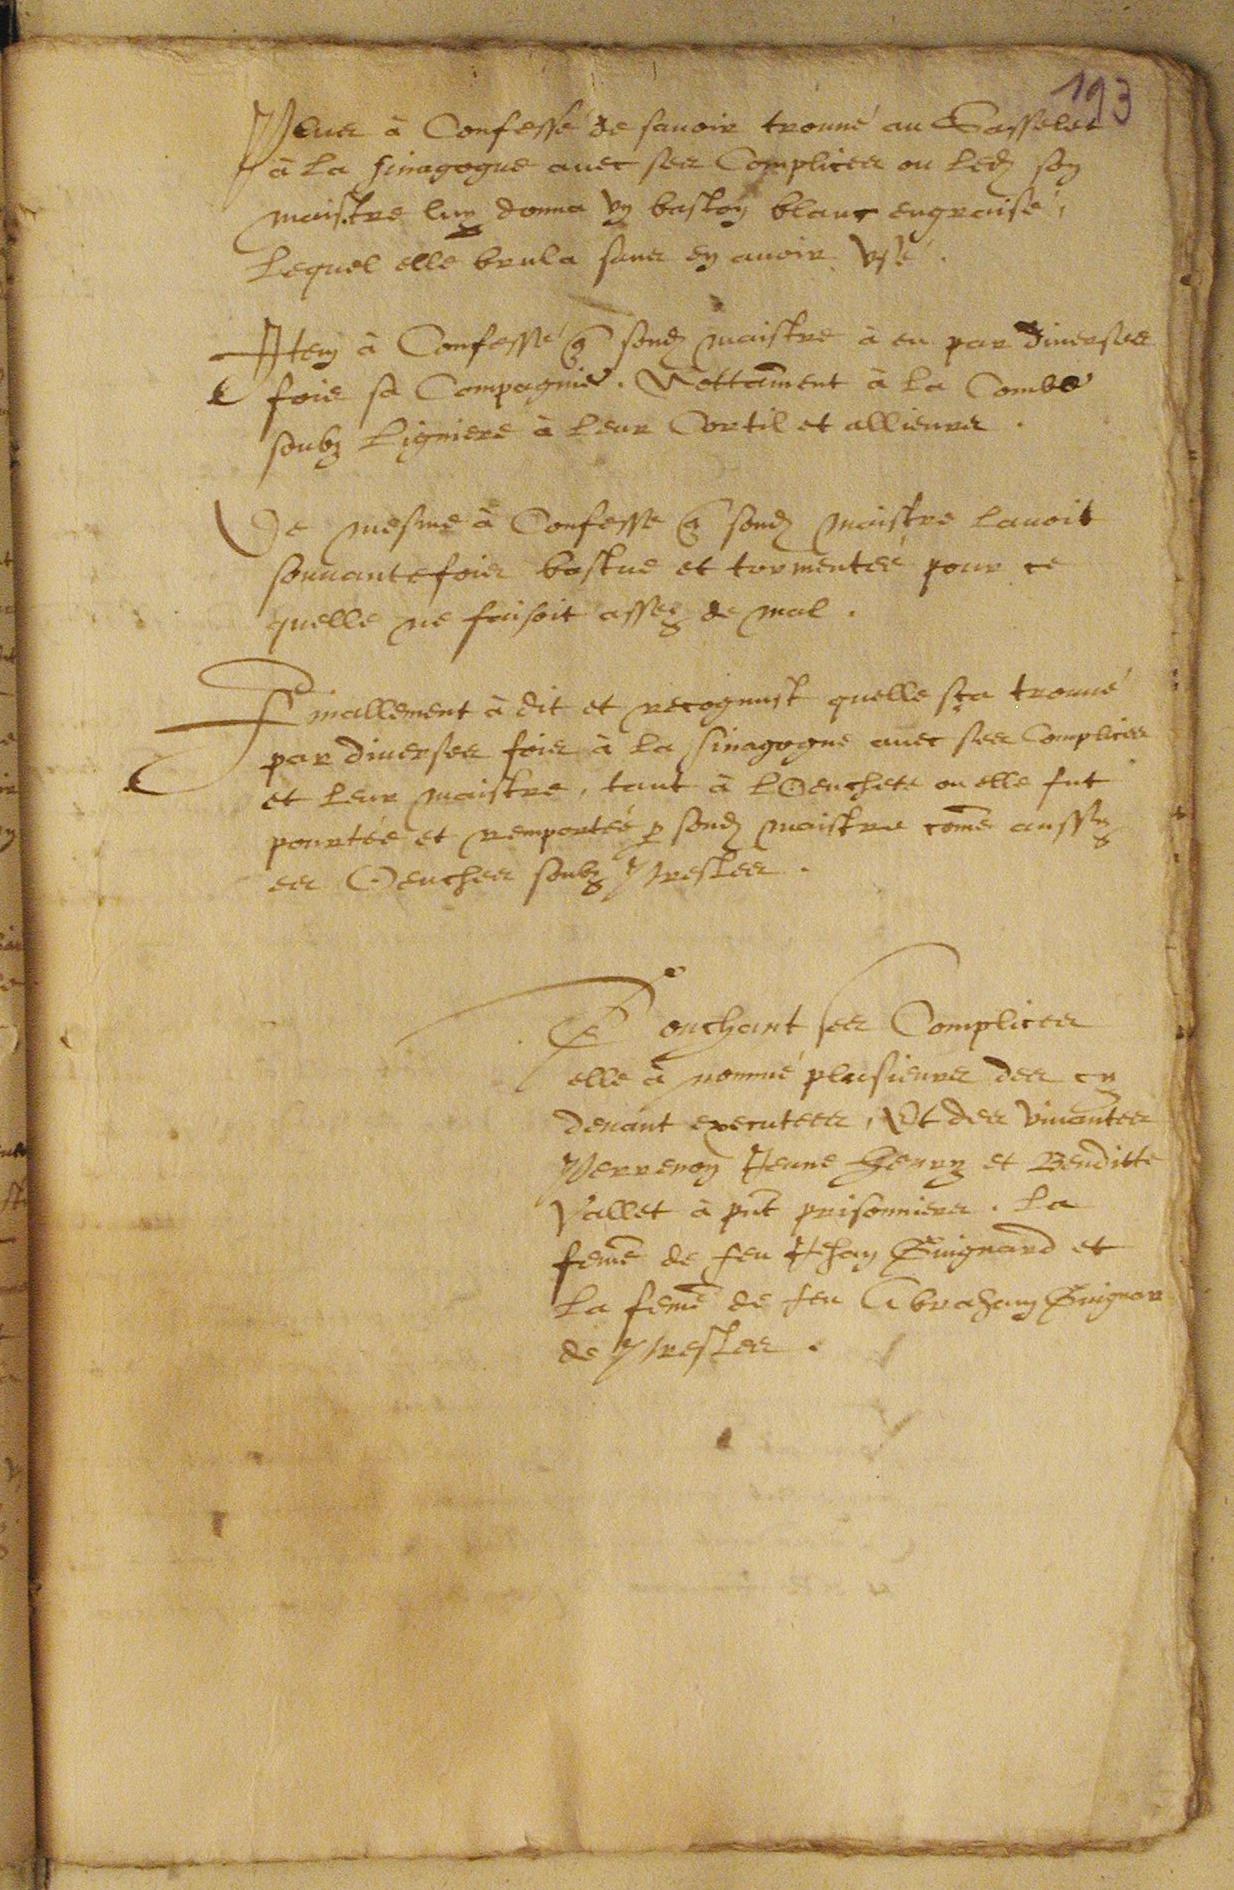 193
Plus à Confessé de sauoir trouué au Gasselet
à la sinagogue auec ses Complices ou led son
maistre luy donna vn baston blanc engraisé,
Lequel elle brula sans en auoir vsé.
Item à Confessé q̃ sond maistre à eu par diuerses
fois sa Compagnie. Nottam̃ent à la Combe
soubz Ligniere à leur Cortil et allieurs.
De mesme à Confesse q̃ sond maistre lauoit
souuantefois bastue et tormentée pour ce
quelle ne faisoit assez de mal.
Finallement à dit et recognust quelle sça trouué
par diuerses fois à la sinagogue auec ses Complices
et leur maistre, tant à lOeuchete ou elle fut
pourtée et remportée p sond maistre com̃e aussy
es Oeuches soubz Presles.
Touchant ses Complices
elle à nommé plusieurs des cy
deuant executees, Et des viuantes
Perrenon Jeune Henry et Benditte
Vallet à pñt prisonnieres. La
fem̃e de feu Jehan Guignard et
La fem̃e de feu Abraham Guignar
de Presles.